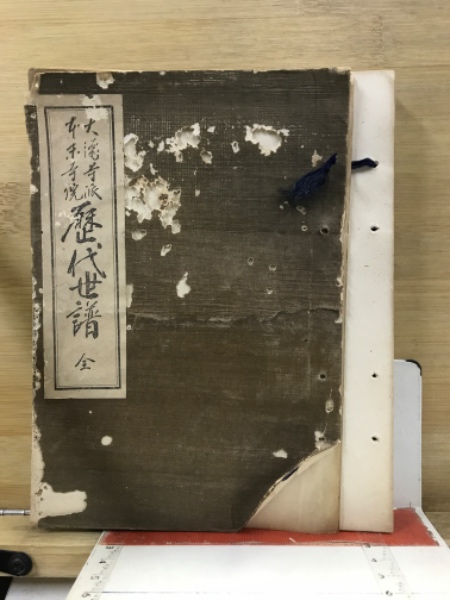 大德寺派
本末寺院
歷代世譜
全